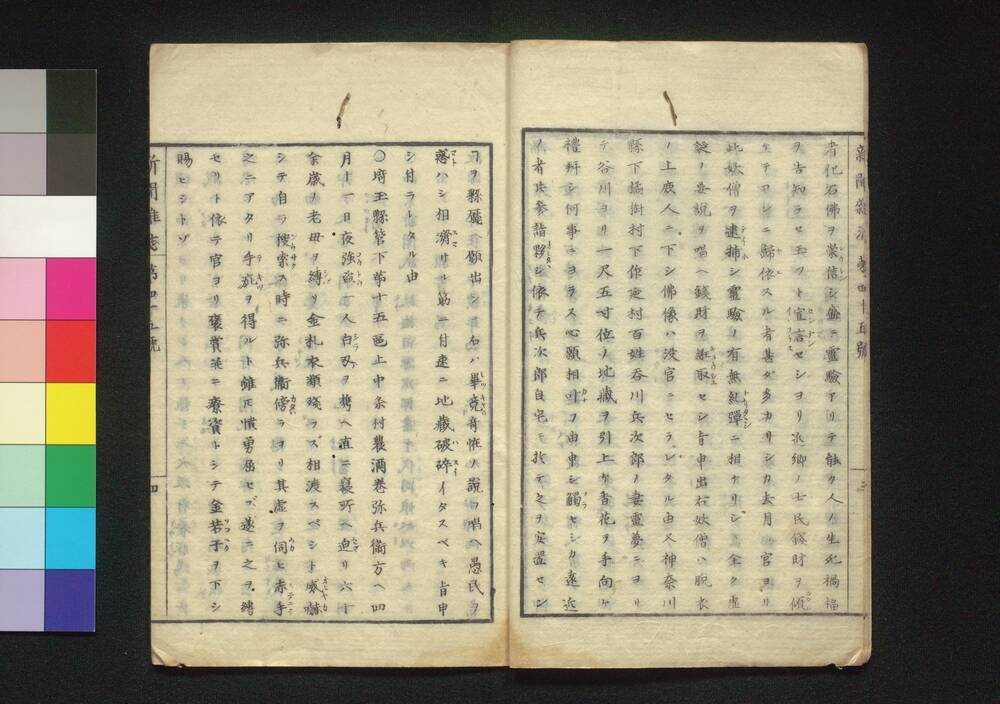 新聞雜誌 第四十五號 三
者化石佛ヲ蒙信シ盛ニ靈驗アリテ能ク人人生死禍福
ヲ告知ラセ玉フト宣言セシヨリ近鄉ノ士民錢財ヲ傾
ケテコレニ歸依スル者甚ダ多カリシカ去月 官ヨリ
此妖僧ヲ逮捕シ靈驗ノ有無糺彈ニ相ナリシニ全ク虛
誕ノ妄說ヲ唱ヘ錢財ヲ 取セシ旨申出石妖僧ハ脫衣
ノ上庶人ニ下シ佛像ハ沒官ニセラレタル由又神奈川
縣下 樹村下作延村百姓吞川兵次郎ノ妻靈夢ニヨリ
テ谷川ヨリ一尺五寸位ノ地藏ヲ引上ケ香花ヲ手向ケ
禮拜シ何事ニヨラス心願相叶フ由申シ觸セシカバ遠近
ノ者共參詣夥シ依テ兵次郎自宅ニ於テ之ヲ安置セン
ヿヲ縣廳ヘ願出シニ右ハ畢竟奇怪ノ說ヲ唱ヘ愚民ヲ
惑ハシ相濟サル筋ニ付速ニ地藏破碎イタスベキ旨申
シ付ラレタル由
〇埼玉縣管下第十五區上中条村農酒卷弥兵衞方ヘ四
月十一日夜強盜一人白刃ヲ携ヘ直ニ寢所ヘ迫リ六十
余歲ノ老母ヲ縛リ金札衣類殘ラズ相渡スベシト威嚇
シテ自ラ搜索ス時ニ弥兵衞傍ラヨリ其虛ヲ伺ヒ赤手
之ニアタリ手疵ヲ得ルト雖モ憤勇屈セズ遂ニ之ヲ縛
セリト依テ官ヨリ褒賞並ニ療資トシテ金若干ヲ下シ
賜ヒシトゾ
新聞雜誌 第四十五號 四